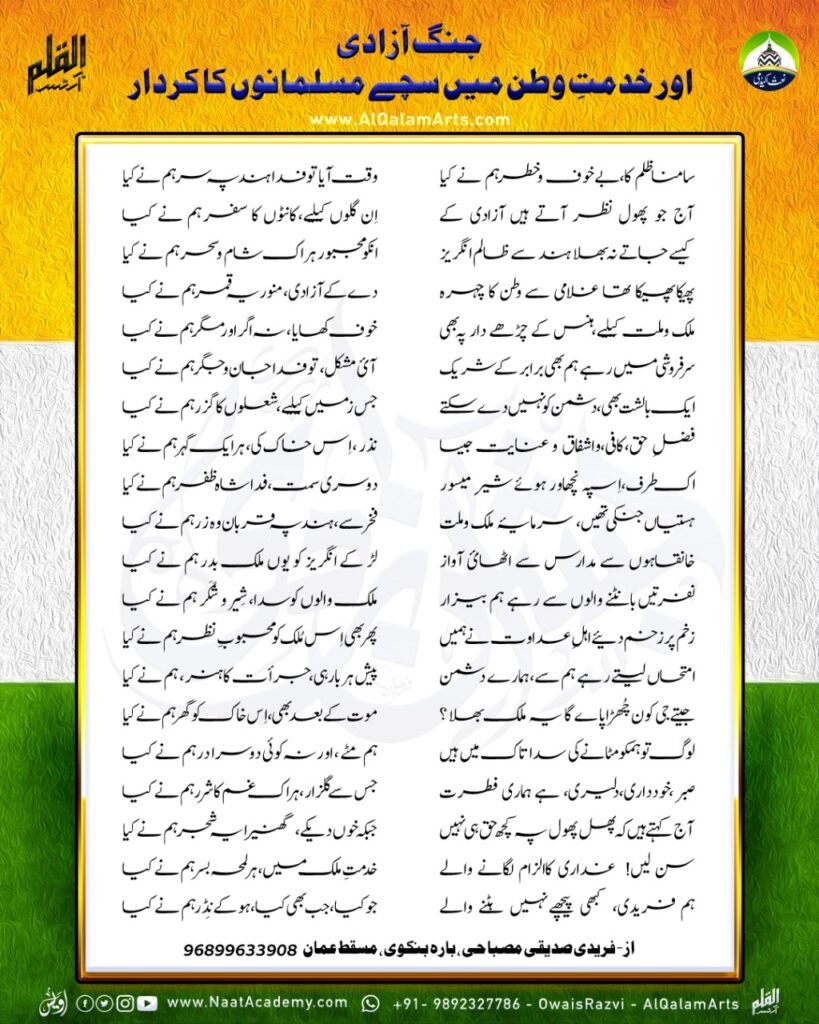 القلم آرٹس
جنگ آزادی
اور خدمتِ وطن میں سچے مسلمانوں کا کردار
www.AlQalamArts.com
سامنا ظلم کا، بے خوف و خطر ہم نے کیا وقت آیا تو فدا ہند پہ سر ہم نے کیا
آج جو پھول نظر آتے ہیں آزادی کے اِن گلوں کیلئے، کانٹوں کا سفر ہم نے کیا
کیسے جاتے نہ بھلا ہند سے ظالم انگریز انکو مجبور ہر اک شام و سحر ہم نے کیا
پھیکا پھیکا تھا غلامی سے وطن کا چہرہ دے کے آزادی، منور یہ قمر ہم نے کیا
ملک و ملت کیلئے، ہنس کے چڑھے دار پہ بھی خوف کھایا، نہ اگر اور مگر ہم نے کیا
سرفروشی میں رہے ہم بھی برابر کے شریک آئی مشکل، تو فدا جان و جگر ہم نے کیا
ایک بالشت بھی، دشمن کو نہیں دے سکتے جس زمیں کیلئے، شعلوں کا گزر ہم نے کیا
فضلِ حق، کافی، و اشفاق و عنایت جیسا نذر، اِس خاک کی، ہر ایک گہر ہم نے کیا
اک طرف، اِسپہ نچھاور ہوئے شیرِ میسور دوسری سمت، فدا شاہ ظفر ہم نے کیا
ہستیاں جنکی تھیں، سرمایۂ ملک و ملت فخر سے، ہند پہ قربان وہ زر ہم نے کیا
خانقاہوں سے مدارس سے اٹھائی آواز لڑ کے انگریز کو یوں ملک بدر ہم نے کیا
نفرتیں بانٹنے والوں سے رہے ہم بیزار ملک والوں کو سدا، شِیر و شَکَر ہم نے کیا
زخم پر زخم دیئے اہلِ عداوت نے ہمیں پھر بھی اِس مُلک کو محبوبِ نظر ہم نے کیا
امتحاں لیتے رہے ہم سے، ہمارے دشمن پیش ہر بار ہی، جرأت کا ہنر، ہم نے کیا
جیتے جی کون چُھڑا پاے گا یہ ملک بھلا؟ موت کے بعد بھی، اِس خاک کو گھر ہم نے کیا
لوگ تو ہمکو مٹانے کی سدا تاک میں ہیں ہم مٹے، اور نہ کوئی دوسرا در ہم نے کیا
صبر، خودداری، دلیری، ہے ہماری فطرت جس سے گلزار، ہر اک غم کا شرر ہم نے کیا
آج کہتے ہیں کہ پھل پھول پہ کچھ حق ہی نہیں جبکہ خوں دیکے، گھنیرا یہ شجر ہم نے کیا
سن لیں! غداری کا الزام لگانے والے خدمتِ ملک میں، ہر لمحہ بسر ہم نے کیا
ہم فریدی، کبھی پیچھے نہیں ہٹنے والے جو کیا، جب بھی کیا، ہو کے نِڈر ہم نے کیا
از- فریدی صدیقی مصباحی، بارہ بنکوی، مسقط عمان 96899633908
www.NaatAcademy.com +91- 9892327786 - OwaisRazvi - AlQalamArts